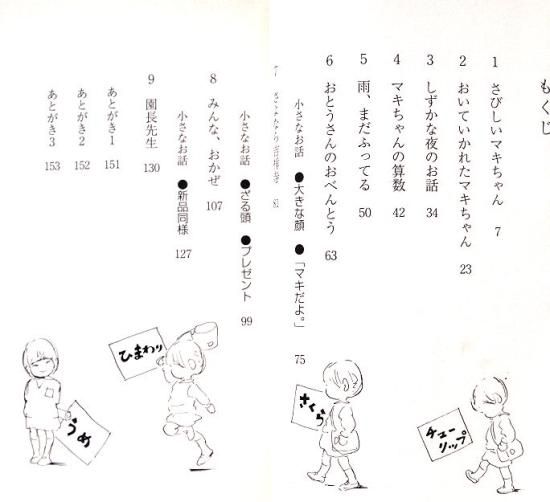 もくじ
1 さびしいマキちゃん 7
2 おいていかれたマキちゃん 23
3 しずかな夜のお話 34
4 マキちゃんの算数 42
5 雨、まだふってる 50
6 おとうさんのおべんとう 63
小さなお話 ●大きな顔 ●「マキだよ。」 75
小さなお話 ●ざる頭 ●プレゼント 99
8 みんな、おかぜ 107
小さなお話 ●新品同様 127
9 園長先生 130
あとがき1 151
あとがき2 152
あとがき3 153
チューリップ
さくら
ひまわり
うめ